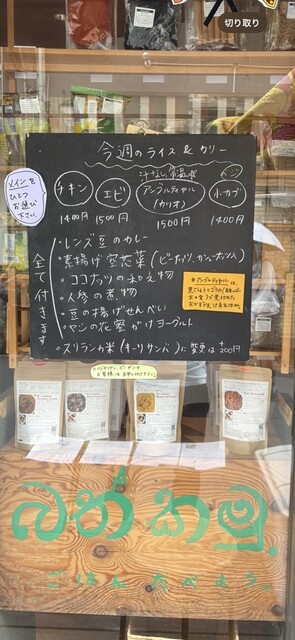 切り取り
今週のライス & カリー
メインを
ひとつ
お選び
下さい
チキン
1400円
エビ
1500円
汁なし、常温
アンブルティヤル
(カツオ)
1500円
小カブ
1400円
全て付きます
・レンズ豆のカレー
・素揚げ空芯菜
・ココナッツの和え物
・人参の煮物
・豆の揚げせんべい
・ヤシの花蜜がけヨーグルト
・スリランカ米(キーリサンバ)に変更は+200円
බත් කමු.
ごはんたべよう。